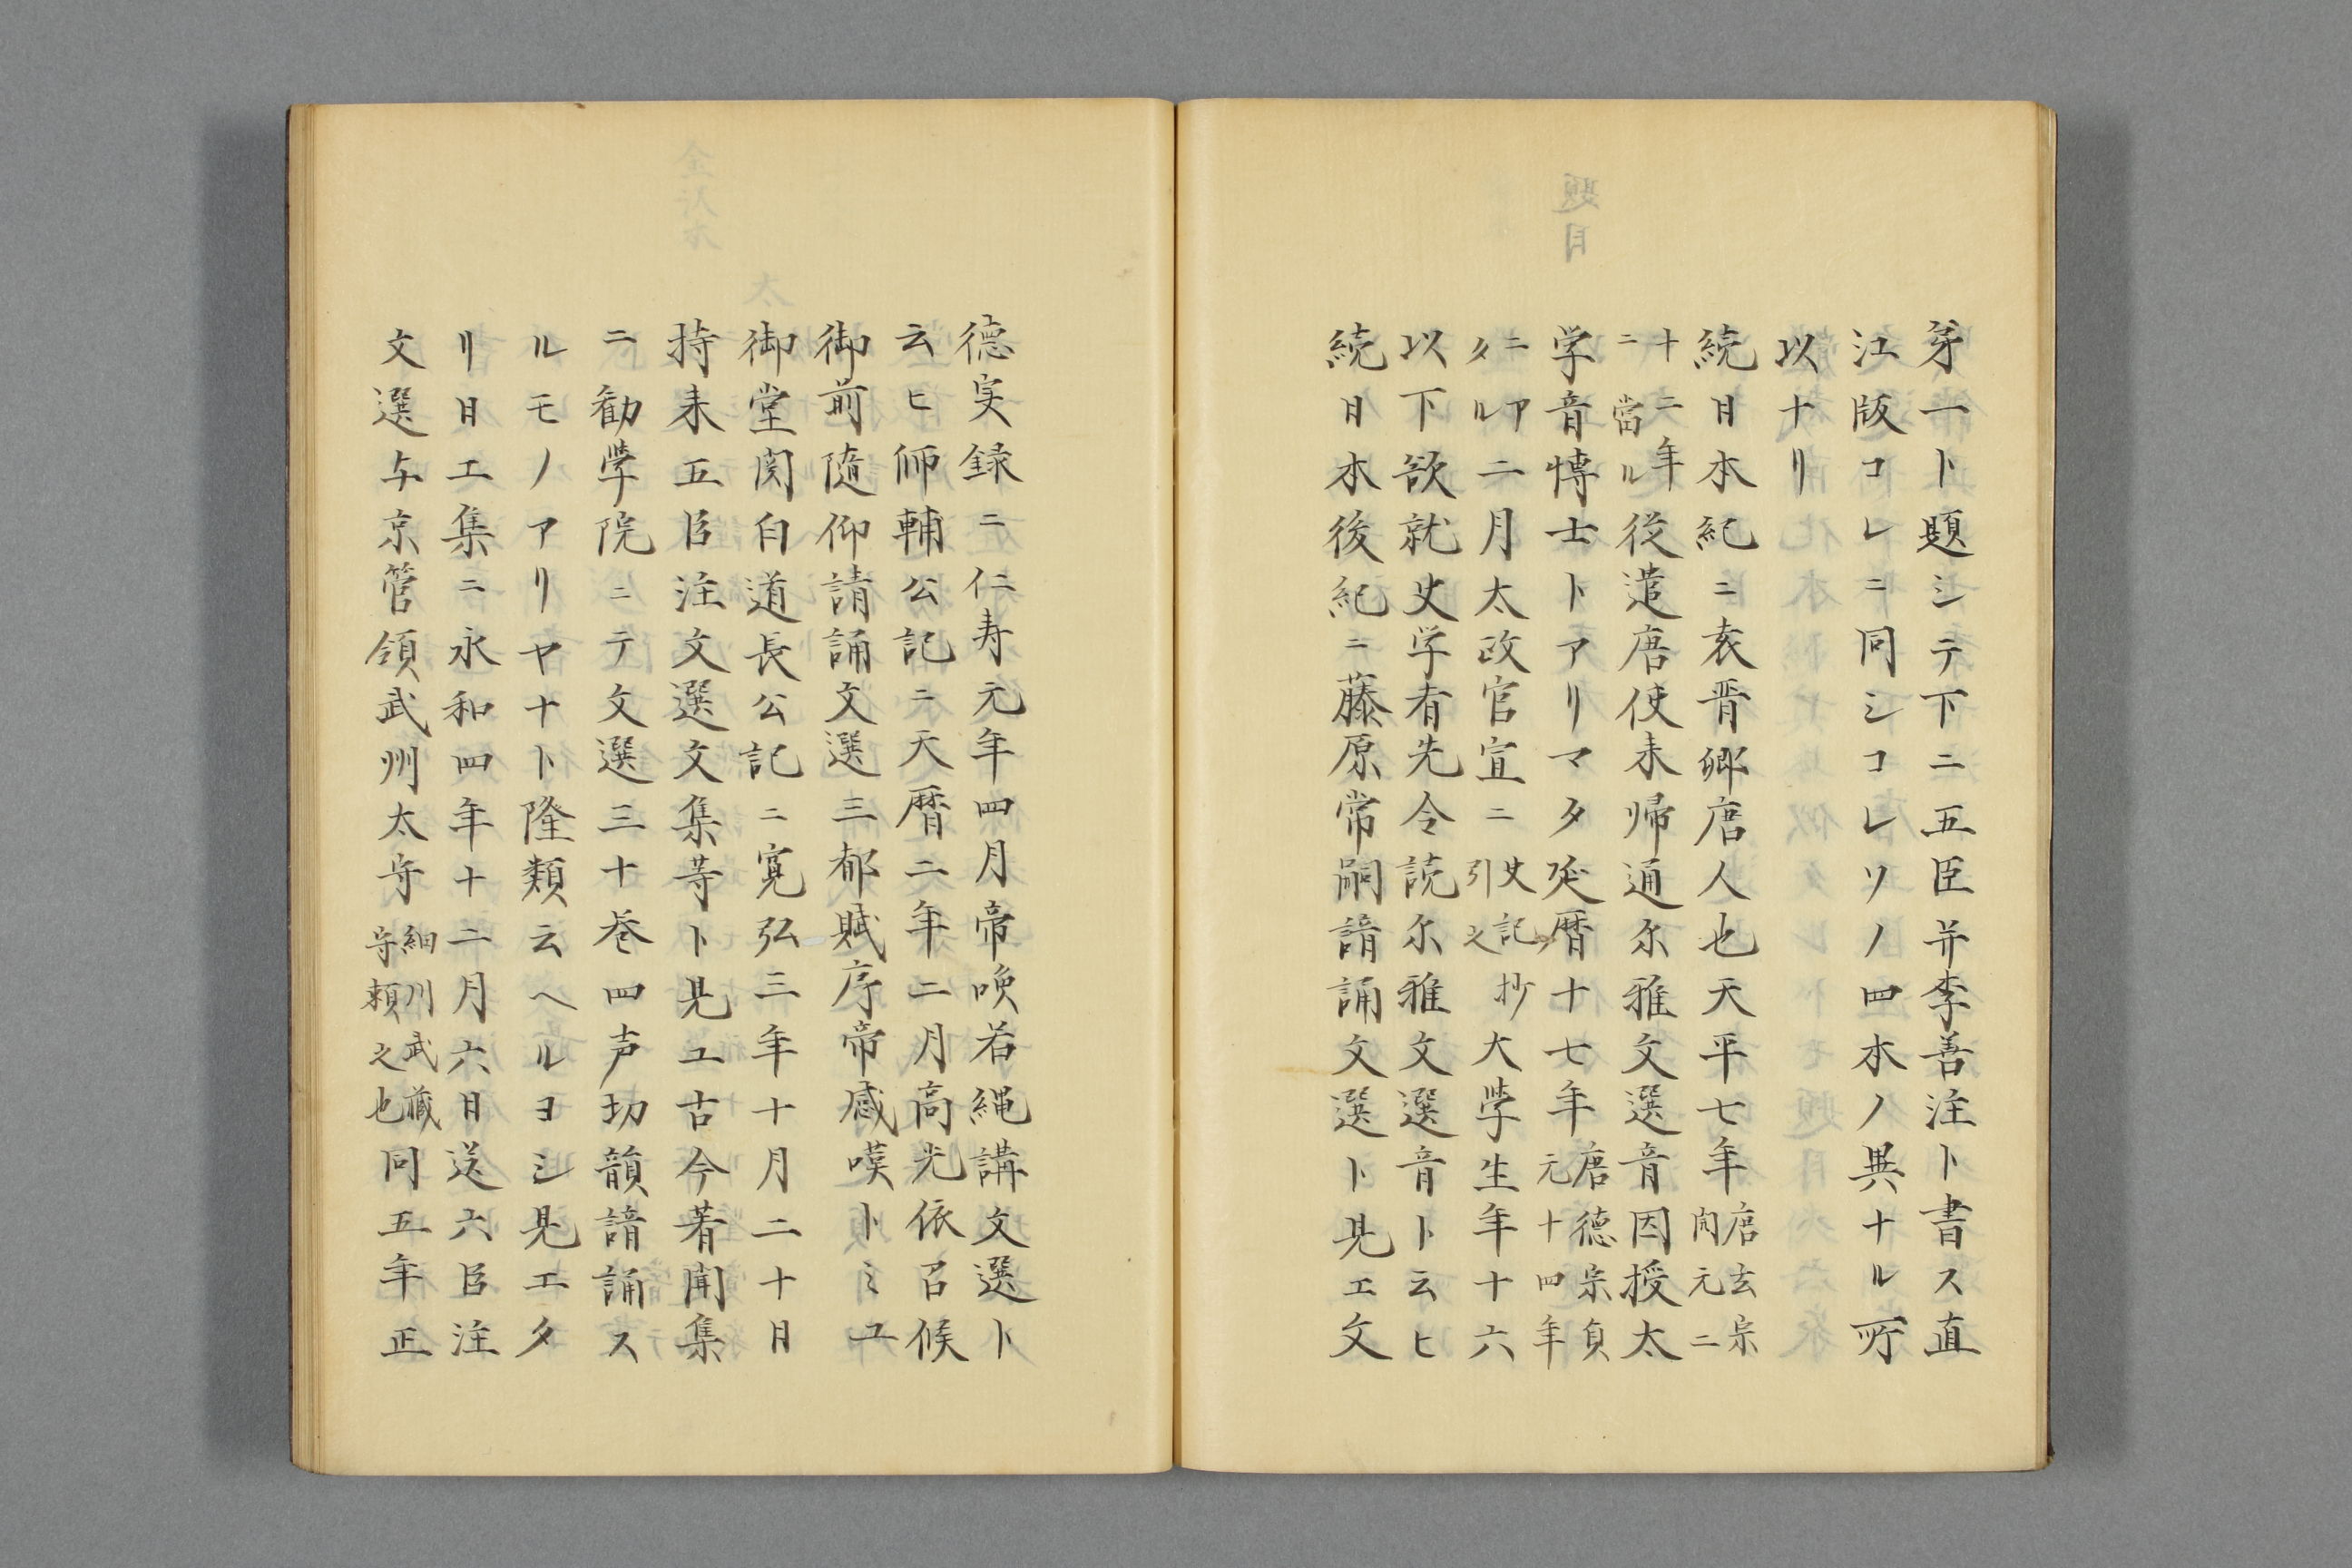 第一ト題シテ下ニ五臣并李善注ト書ス直
江版コレニ同シコレソノ四本ノ異ナル所
以ナリ
続日本紀ニ袁晋卿唐人也天平七年唐玄宗開元二
十三年ニ當ル従遣唐使来帰通尓雅文選音因授太
学音博士トアリマタ延暦十七年唐徳宗貞元十四年
ニアタル二月太政官宣ニ史記抄引之大學生年十六
以下欲就史学者先令読尓雅文選音ト云ヒ
続日本後紀ニ藤原常嗣諳誦文選ト見エ文
徳実録ニ仁寿元年四月帝喚若縄講文選ト
云ヒ師輔公記ニ天暦二年二月高光依召候
御前随仰請誦文選三都賦序帝感嘆トミユ
御堂関白道長公記ニ寛弘三年十月二十日
持来五臣注文選文集等ト見ユ古今著聞集
ニ勧學院ニテ文選三十巻四声切韻諳誦ス
ルモノアリヤナト隆頼云ヘルヨシ見エタ
リ日工集ニ永和四年十二月六日送六臣注
文選与京管領武州太守細川武蔵守頼之也同五年正